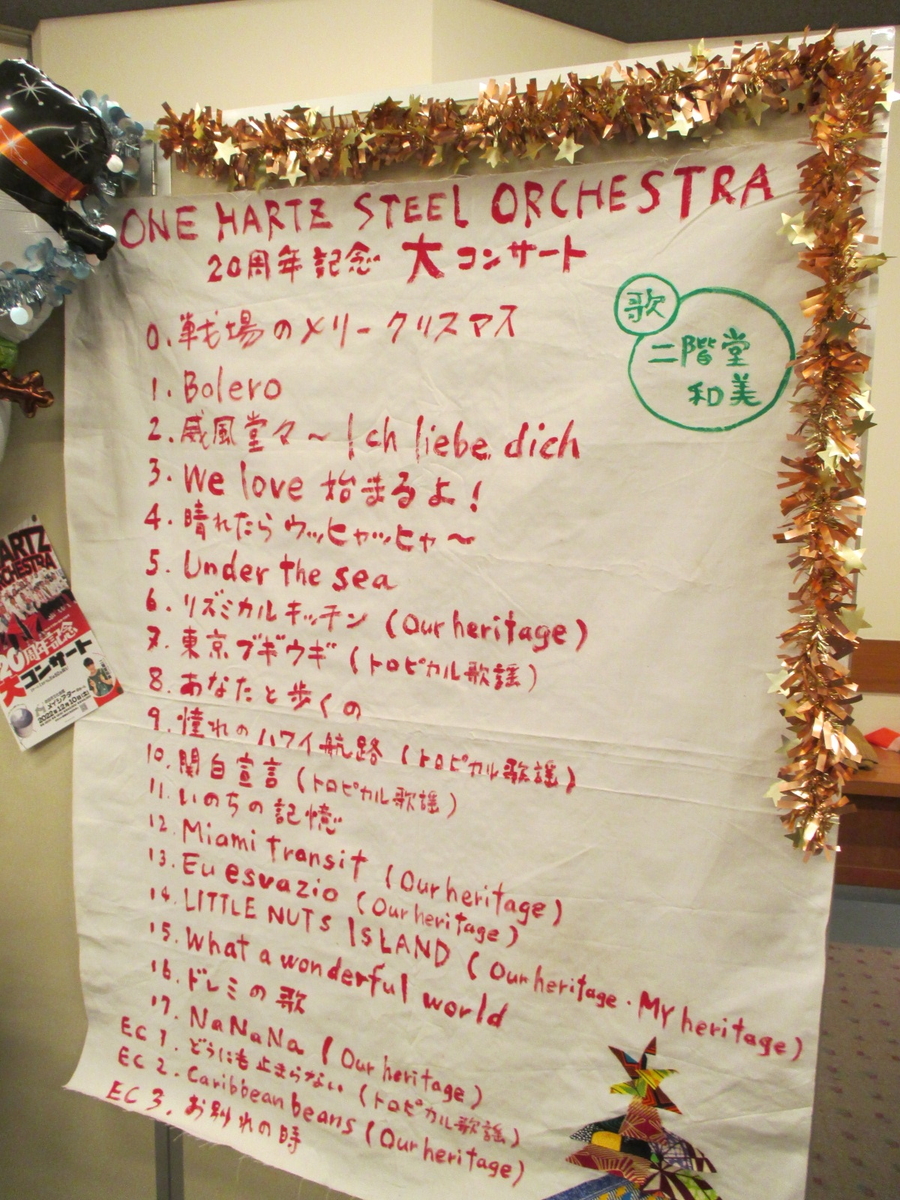 ONE HARTZ STEEL ORCHESTRA
20周年記念 大コンサート
歌
二階堂
和美
0. 戦場のメリークリスマス
1. Bolero
2. 威風堂々～Ich liebe dich
3. We love 始まるよ!
4. 晴れたらウッヒャッヒャ～
5. Under the sea
6. リズミカルキッチン (Our heritage)
7. 東京ブギウギ (トロピカル歌謡)
8. あなたと歩くの
9. 憧れのハワイ航路 (トロピカル歌謡)
10. 関白宣言 (トロピカル歌謡)
11. いのちの記憶
12. Miami transit (Our heritage)
13. Eu esvazio (Our heritage)
14. LITTLE NUTS ISLAND (Our heritage・My heritage)
15. What a wonderful world
16. ドレミの歌
17. NaNaNa (Our heritage)
EC 1. どうにも止まらない (トロピカル歌謡)
EC 2. Caribbean beans (Our heritage)
EC 3. お別れの時
HARTZ
ORCHESTRA
20周年記念
大コンサート
メイシアター
2022年12月10日